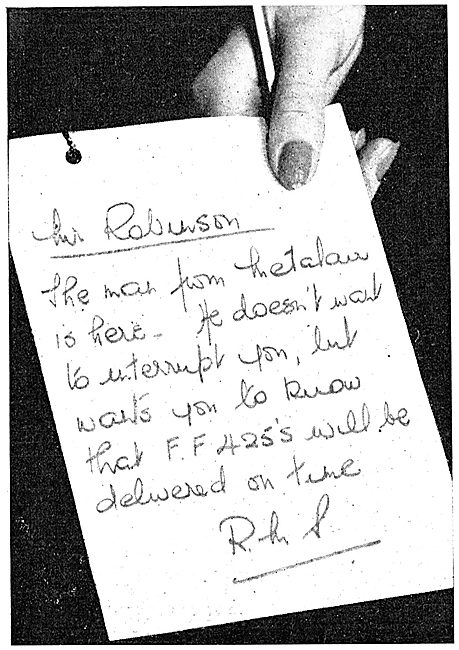 Mr Robinson
The man from Metalair
is here - He doesn't want
to interrupt you, but
wants you to know
that F.F 425's will be
delivered on time
R. M S